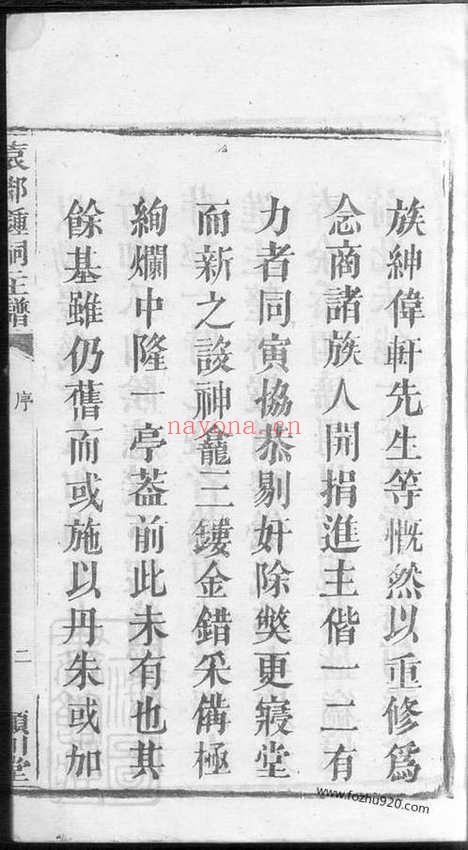 族紳偉軒先生等慨然以重修爲
念商諸族人開捐進主偕一二有
力者同寅協恭剔奸除獘更寢堂
而新之設神龕三鏤金錯采備極
絢爛中隆一亭葢前此未有也其
餘基雖仍舊而或施以丹朱或加
袁鄒鍾祠主譜
序
二
潁川堂
nayona.cn
www.fozhu920.com